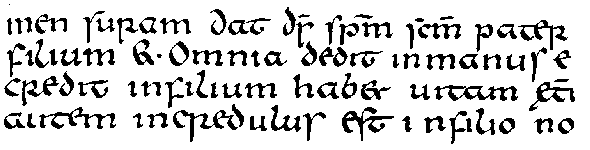 men suram dat dς̄ sp̄m sc̄m pater
filium &· Omnia dedit inmanus e
credit infilium hab& uitam et̄i
autem incredulus est infilio no